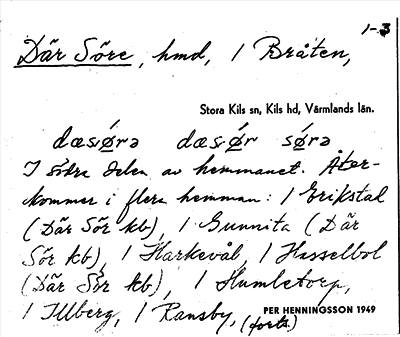 1-3
Där Söre, hmd, 1 Bråten,
Stora Kils sn, Kils hd, Värmlands län.
dæsø̀rə dæsø̀r sø̀rə
I södra delen av hemmanet. Åter-
kommer i flera hemman: 1 Erikstal
(Där Sör kb), 1 Gunnita (Där
Sör kb), 1 Harkevål, 1 Hasselbol
(Där Sör kb), 1 Humletorp,
1 Illberg, 1 Ransby, (forts.)
PER HENNINGSSON 1949